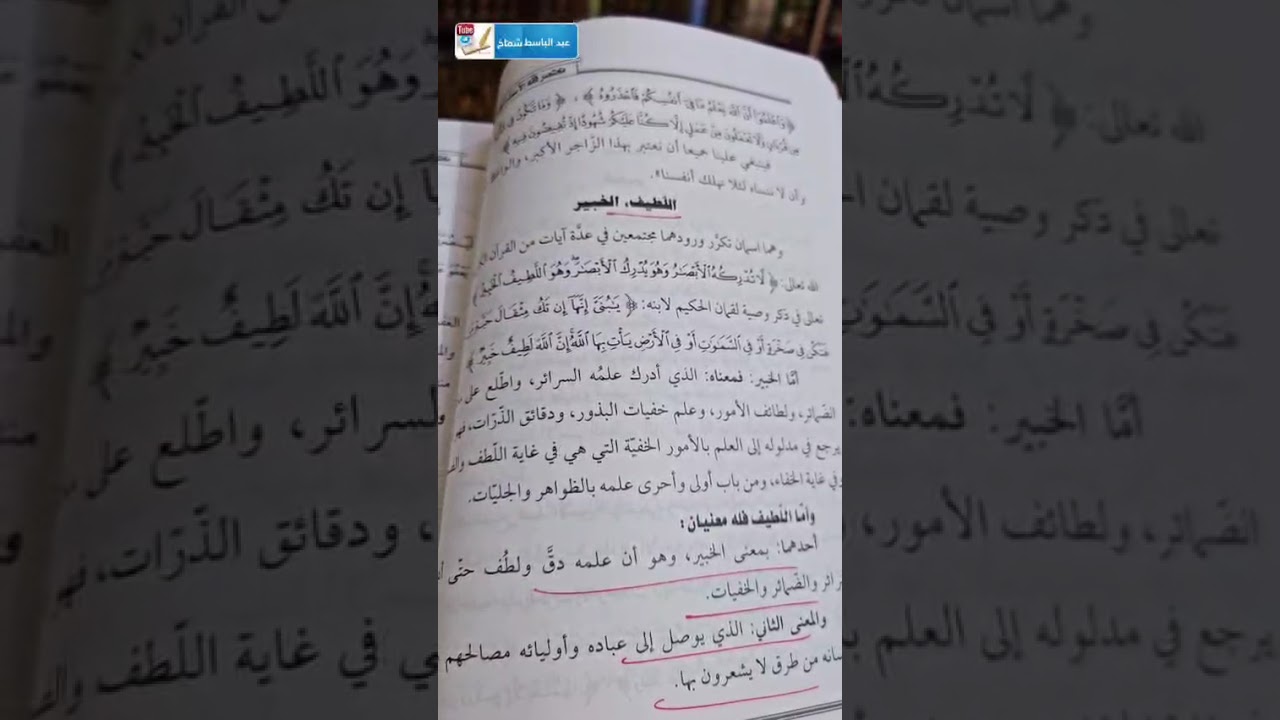 Tube
عبد الباسط شماخ
مختصر فقه
﴿ وَاعْلَمُوا أَنَّ اللَّهَ يَعْلَمُ مَا فِي أَنْفُسِكُمْ فَاحْذَرُوهُ ﴾، ﴿ وَمَا تَكُونُ فِي
مِن قُرْءَانٍ وَلَا تَعْمَلُونَ مِنْ عَمَلٍ إِلَّا كُنَّا عَلَيْكُمْ شُهُودًا إِذْ تُفِيضُونَ فِيهِ ﴾
فينبغي علينا جميعا أن نعتبر بهذا الزّاجر الأكبر، والواعظ
وأن لا ننساه لئلا نهلك أنفسنا».
اللّطيف، الخبير
وهما اسمان تكرَّر ورودهما مجتمعين في عدَّة آيات من القرآن
الله تعالى: ﴿ لَا تُدْرِكُهُ ٱلْأَبْصَـٰرُ وَهُوَ يُدْرِكُ ٱلْأَبْصَـٰرَ وَهُوَ ٱللَّطِيفُ ٱلْخَبِيرُ ﴾
تعالى في ذكر وصية لقمان الحكيم لابنه: ﴿ يَـٰبُنَىَّ إِنَّهَآ إِن تَكُ مِثْقَالَ حَبَّةٍ
فَتَكُن فِى صَخْرَةٍ أَوْ فِى ٱلسَّمَـٰوَٰتِ أَوْ فِى ٱلْأَرْضِ يَأْتِ بِهَا ٱللَّهُ إِنَّ ٱللَّهَ لَطِيفٌ خَبِيرٌ ﴾
أمَّا الخبير: فمعناه: الذي أدرك علمُه السرائر، واطّلع على
الضّمائر، ولطائف الأمور، وعلم خفيات البذور، ودقائق الذّرّات، فهو
يرجع في مدلوله إلى العلم بالأمور الخفيّة التي هي في غاية اللّطف
وفي غاية الخفاء، ومن باب أولى وأحرى علمه بالظواهر والجليّات.
وأمّا اللّطيف فله معنيان:
أحدهما: بمعنى الخبير، وهو أن علمه دقَّ ولطُف حتّى
والضّمائر والخفيات.
والمعنى الثاني: الذي يوصل إلى عباده وأوليائه مصالحهم
من طرق لا يشعرون بها.